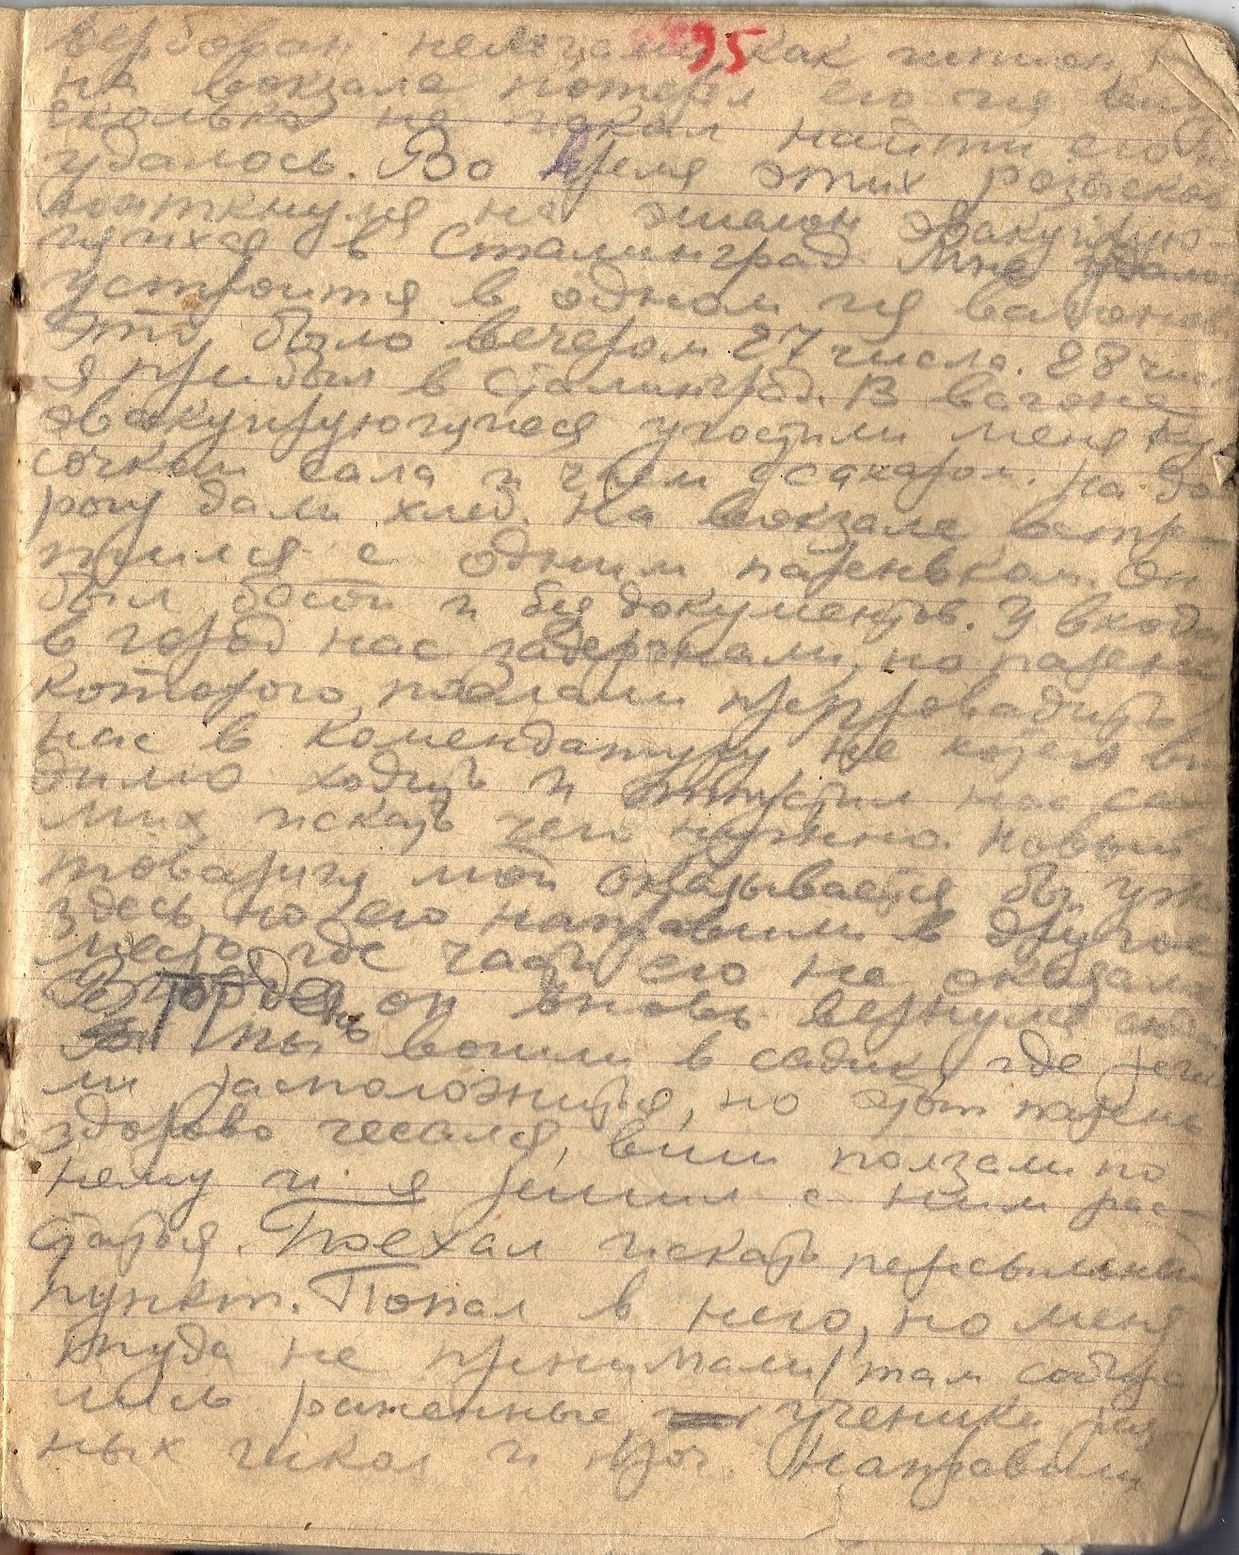 95
вербован немцами, как шпион,
на вокзале потерял его из вида
сколько не искал найти его не
удалось. Во время этих розысков
наткнулся на эшалон эвакуирую-
щихся в Сталинград. Мне удалось
устроится в одном из вагонов
Это было вечером 27 число. 28 числа
я прибыл в Сталинград. В вагоне
эвакуирующиеся угостили меня ку-
сочком сала и чаем с сахаром. На до-
рогу дали хлеб. На вокзале встре-
тился с одним пареньком. Он
был босой и без документов. У входа
в город нас задержали, но парень
которого послали препровадить
нас в комендатуру не хотел
ходить и отпустил нас са-
мих искать чего нужно. Новый
товарищ мой оказывается был уже
здесь но его направили в другое
место где часть его не оказалась
он вновь вернулся сюда
Мы вошли в садик, где реши-
ли расположится, но этот парень
здорово чесался, вши ползали по
нему и я решил с ним рас-
статься. Поехал искать пересыльный
пункт. Попал в него, но меня
туда не принимали/там собира-
лись раненные ученики раз-
ных школ и проч. Направили